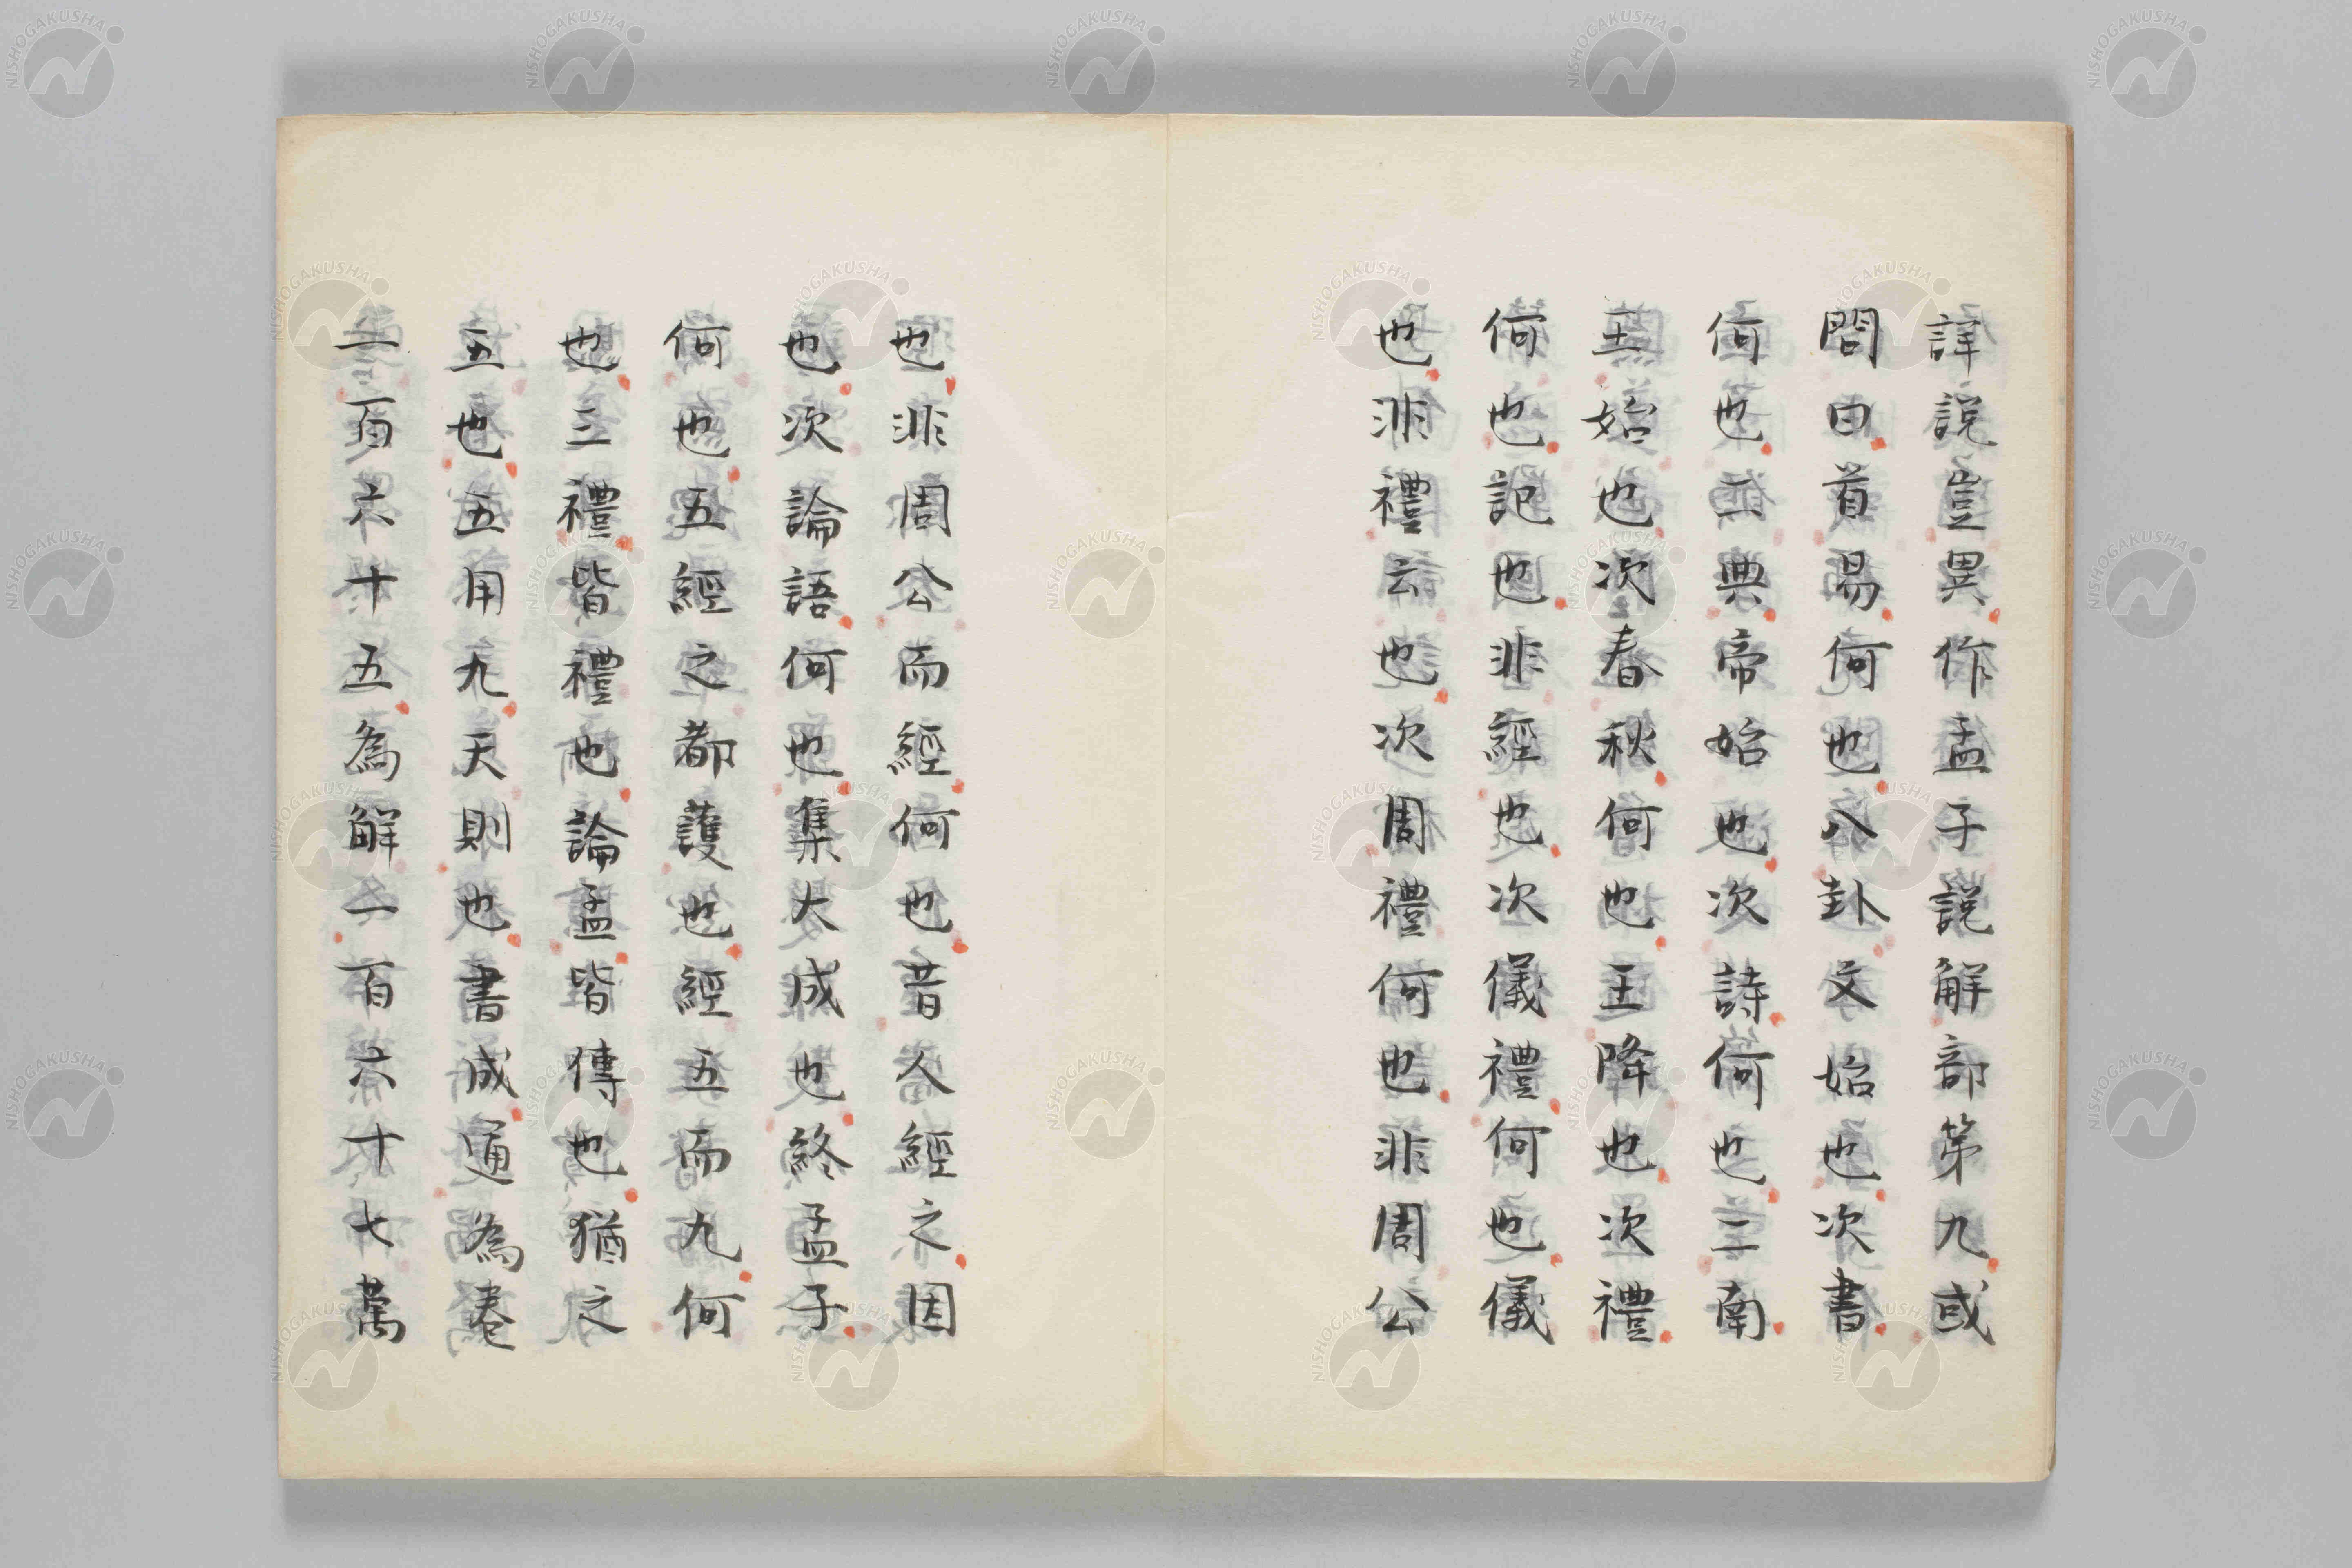 詳説豈異作孟子説解部第九或
問曰首易何也八卦文始也次書
何也二典帝始也次詩何也二南
王始也次春秋何也王降也次禮
何也記也非經也次儀禮何也儀
也非禮云也次周禮何也非周公
也非周公而經何也昔人經之因
也次論語何也集大成也終孟子
何也五經之都護也經五而九何
也三禮皆禮也論孟皆傳也猶之
五也五用九天則也書成通為卷
二百六十五為解二百六十七萬
NISHOGAKUSHA